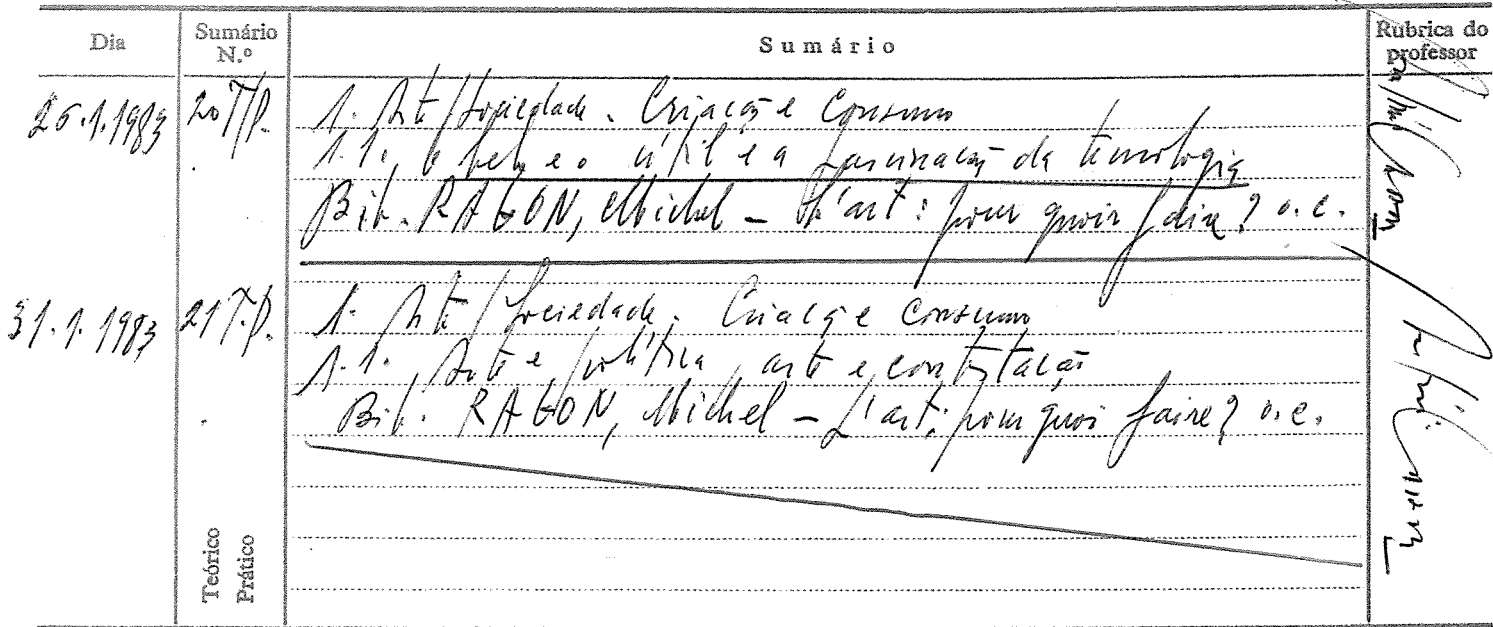 Dia
Sumário N.º
Sumário
Rubrica do professor
26.1.1983
20 T/P.
1. Arte/Sociedade. Criação e Consumo
1.1. O belo e o útil e a fascinação da tecnologia
Bib. RAGON, Michel – L'art: pour quoi faire? o.c.
31.1.1983
21 T.P.
1. Arte/Sociedade. Criação e Consumo
1.1. Arte e política, arte e contestação
Bib. RAGON, Michel – L'art: pour quoi faire? o.c.
Teórico
Prático